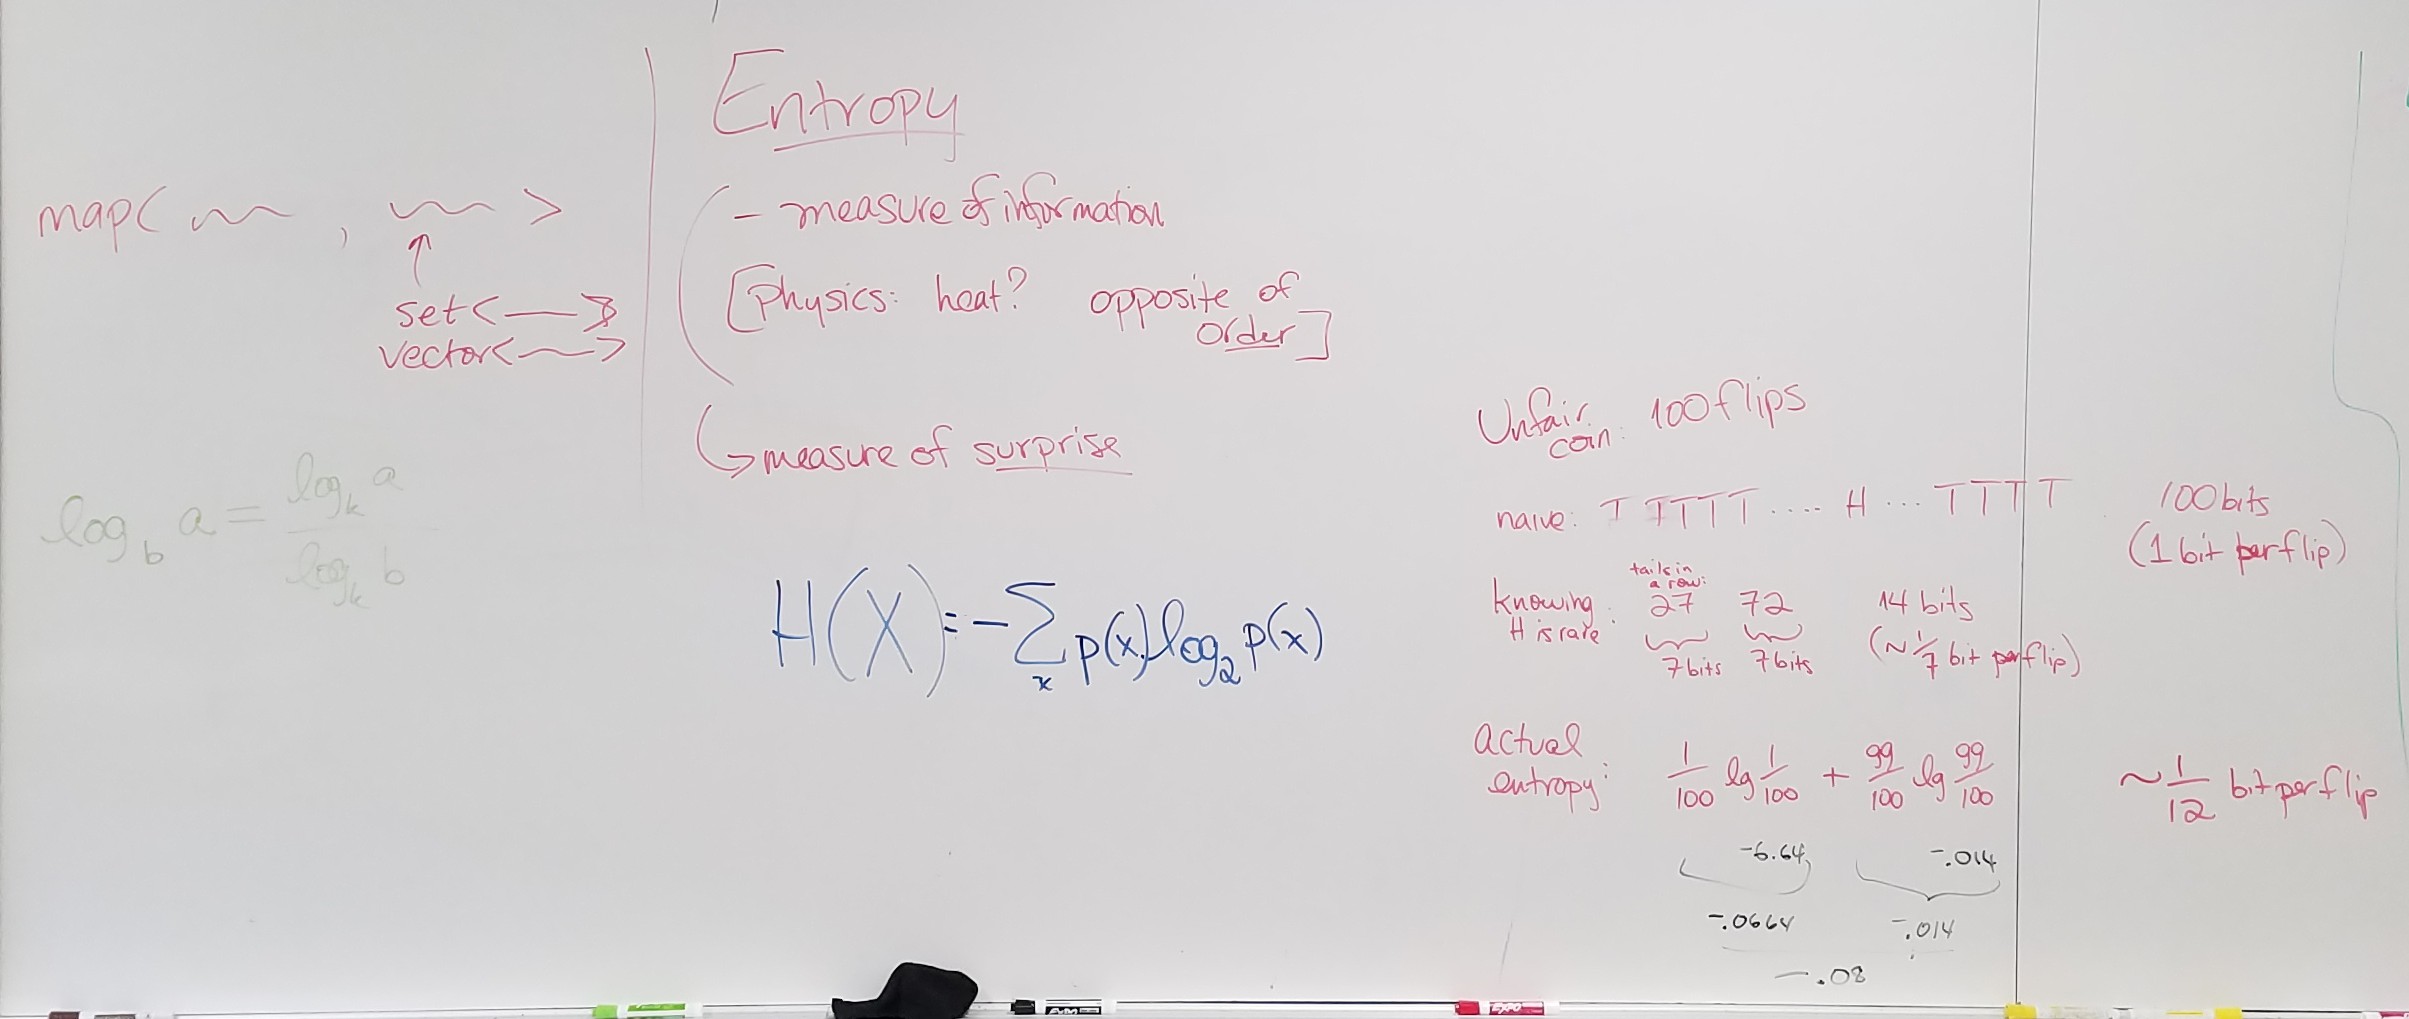 map< ~~ , ~~ >
↑
set< — >>
vector< ~ >
log_b a = log_k a / log_k b
Entropy
- measure of information
[Physics: heat? opposite of
order]
↳ measure of surprise
H(X) = - Σ_x p(x) log₂ p(x)
Unfair coin: 100 flips
naive: T TTTT .... H ... TTTT T 100 bits
(1 bit per flip)
tails in
a row:
knowing H is rare: 27 72 14 bits
7 bits 7 bits (~ 1/7 bit per flip)
actual entropy: 1/100 lg 1/100 + 99/100 lg 99/100 ~ 1/12 bit per flip
-6.64 -.014
-.0664 -.014
-.08
EXPO
EXPO